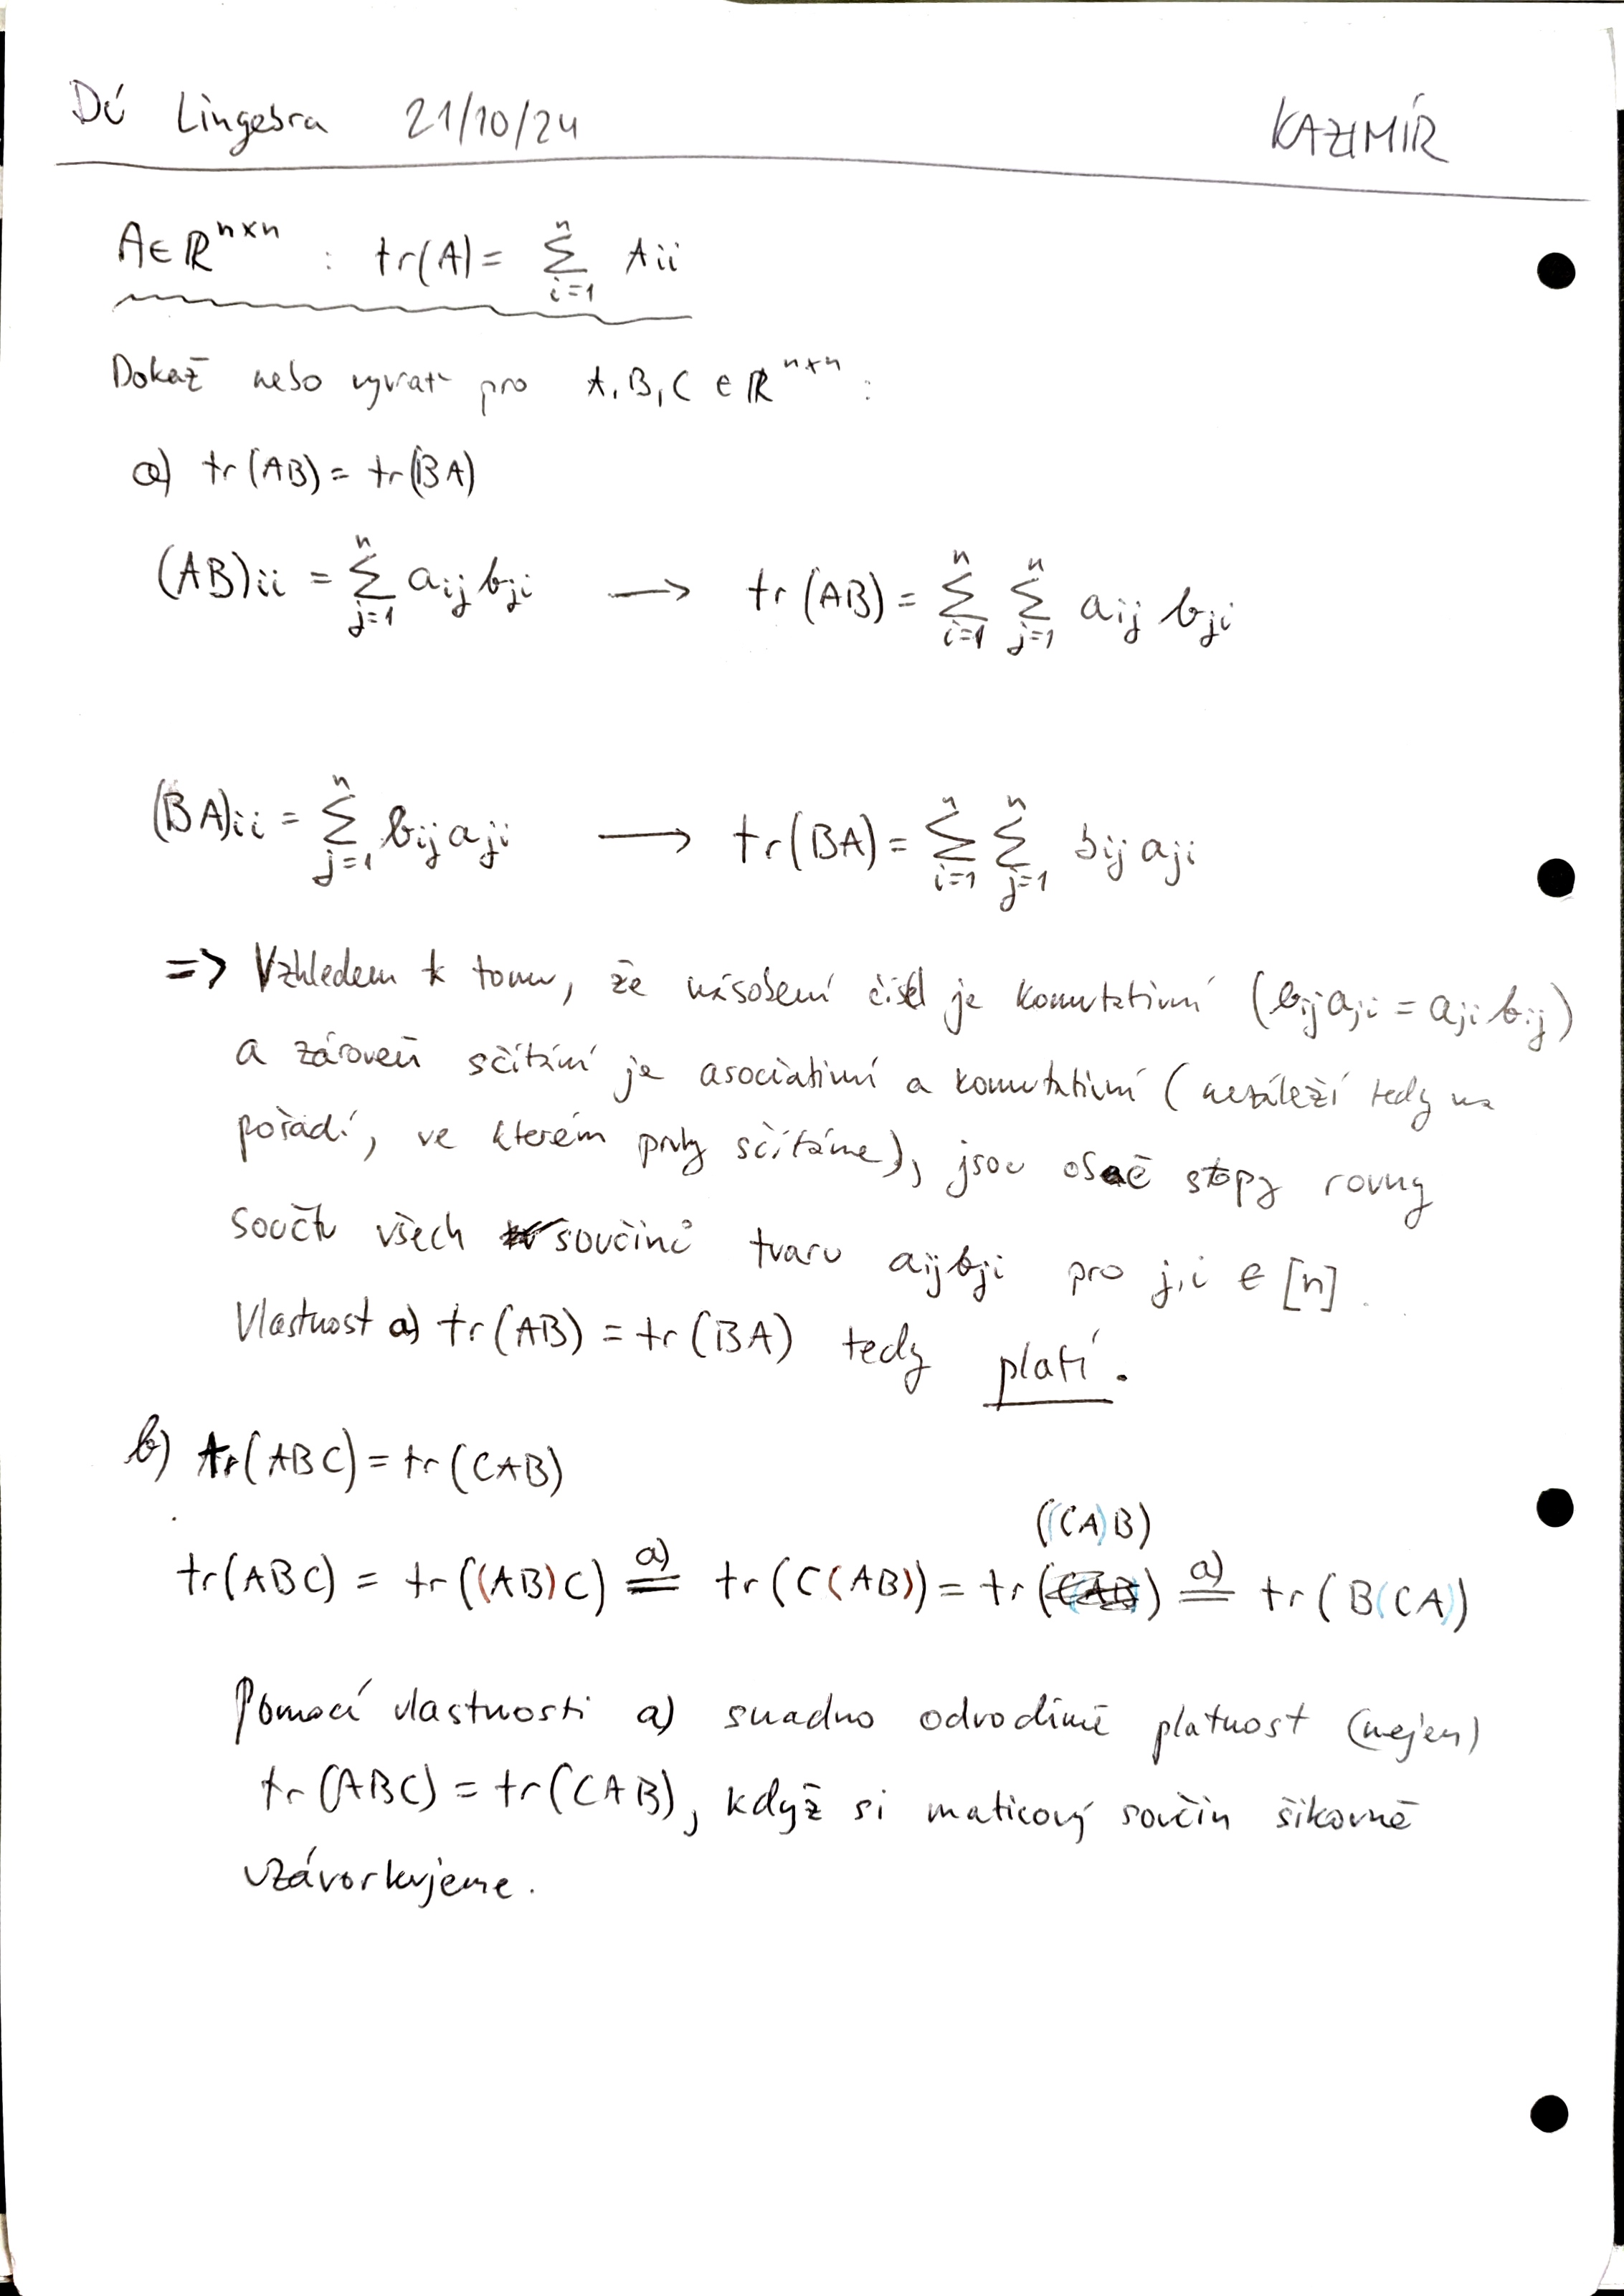 DÚ Lingebra 21/10/24 KAZIMÍR
A∈ℝⁿˣⁿ : tr(A) = ∑_{i=1}^{n} Aii
Dokaž nebo vyvrať pro A, B, C ∈ ℝⁿˣⁿ :
a) tr(AB) = tr(BA)
(AB)ii = ∑_{j=1}^{n} aij bji → tr(AB) = ∑_{i=1}^{n} ∑_{j=1}^{n} aij bji
(BA)ii = ∑_{j=1}^{n} bij aji → tr(BA) = ∑_{i=1}^{n} ∑_{j=1}^{n} bij aji
=> Vzhledem k tomu, že násobení čísel je komutativní (bij aji = aji bij)
a zároveň sčítání je asociativní a komutativní (nezáleží tedy na
pořadí, ve kterém prvky sčítáme), jsou obě stopy rovny
součtu všech součinů tvaru aij bji pro j,i ∈ [n].
Vlastnost a) tr(AB) = tr(BA) tedy platí.
b) tr(ABC) = tr(CAB)
((CA)B)
tr(ABC) = tr((AB)C) =^{a)} tr(C(AB)) = tr( ) =^{a)} tr(B(CA))
Pomocí vlastnosti a) snadno odvodíme platnost (nejen)
tr(ABC) = tr(CAB), když si maticový součin šikovně
uzávorkujeme.